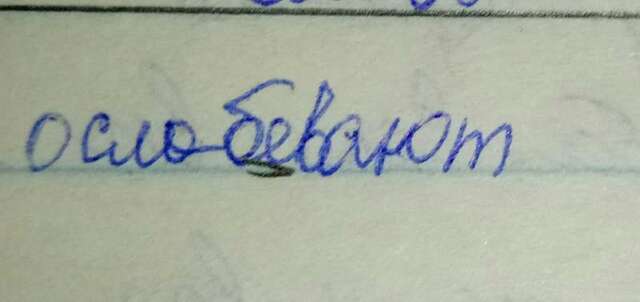 ослобевают